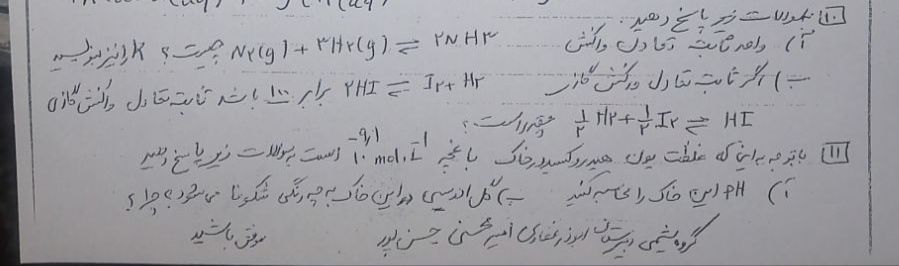 ۱۰ بسوالات زیر پاسخ دهید:
آ) واحد ثابت تعادل واکنش N۲(g) + ۳H۲(g) ⇌ ۲NH۳ چیست؟ K را نیز بنویسید
ب) اگر ثابت تعادل واکنش گازی ۲HI ⇌ I۲ + H۲ برابر ۱۰۰ باشد ثابت تعادل واکنش گازی
½ H۲ + ½ I۲ ⇌ HI چقدر است؟
۱۱ باتوجه به این که غلظت یون هیدروکسید در خاک باغچه ۱۰^-۹٫۱ mol.L^-1 است به سوالات زیر پاسخ دهید
آ) PH این خاک را محاسبه کنید ب) گل ادریسی در این خاک به چه رنگی شکوفا می شود؟ چرا؟
گروه شیمی دبیرستان ابوذر غفاری امیر محسنی حسن پور موفق باشید